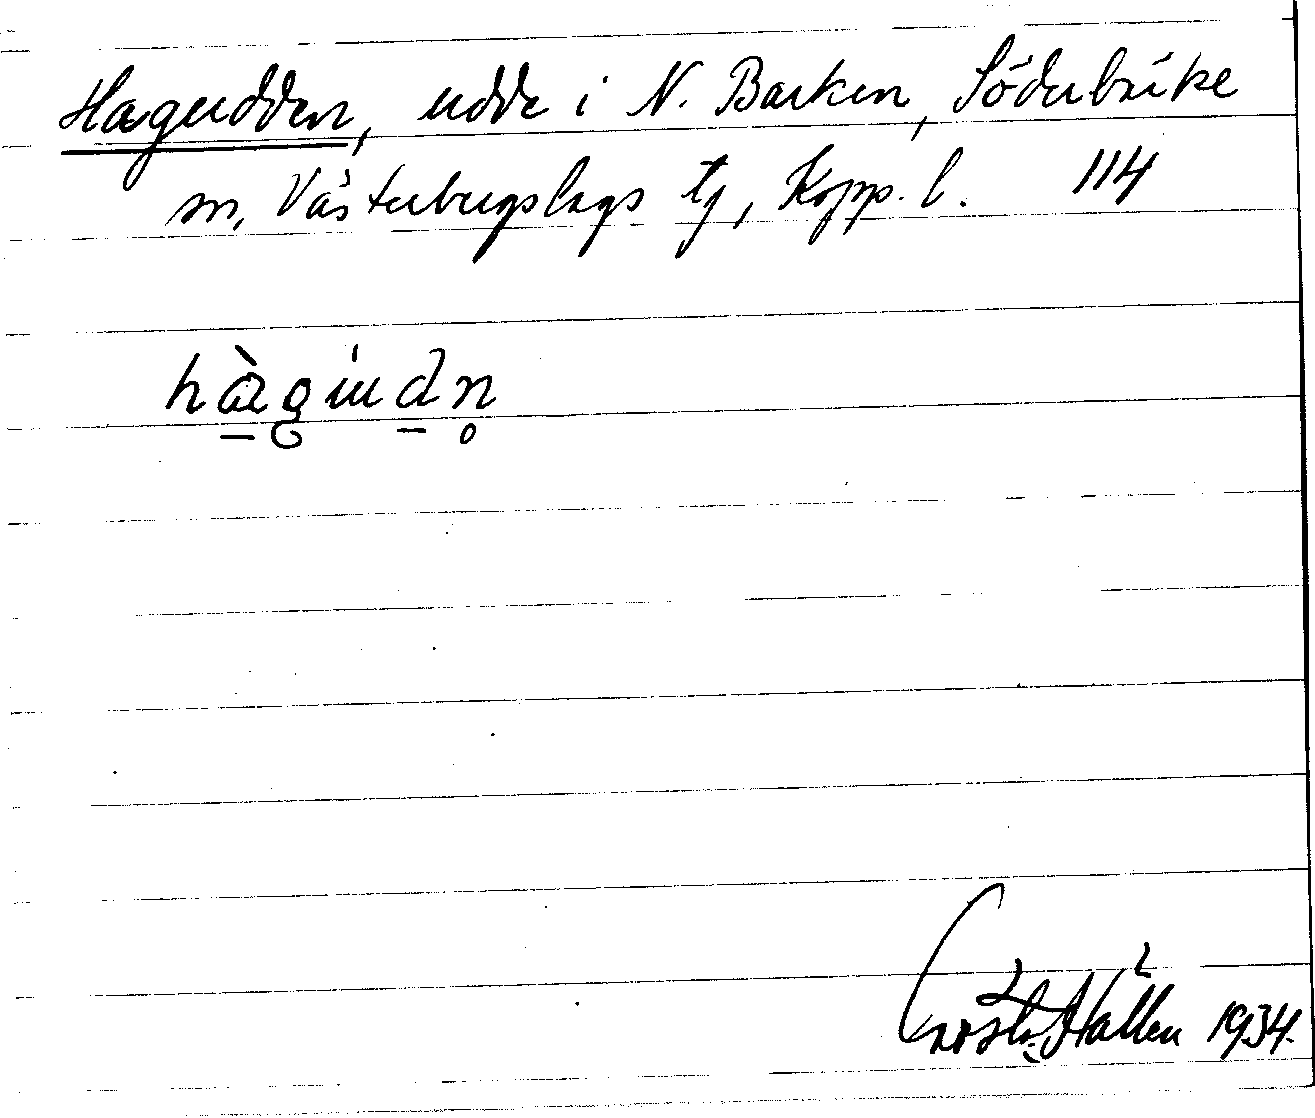 Hagudden, udde i N. Barken, Söderbärke
sn, Västerbergslags tg, Kopp. l. 114
Gösta Hallén 1934.